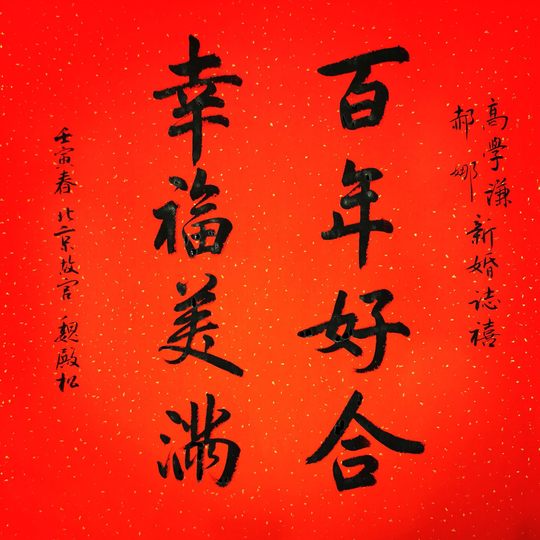 高學謙
郝娜
新婚誌禧
百年好合
幸福美滿
壬寅春 北京故宫 魏殿松